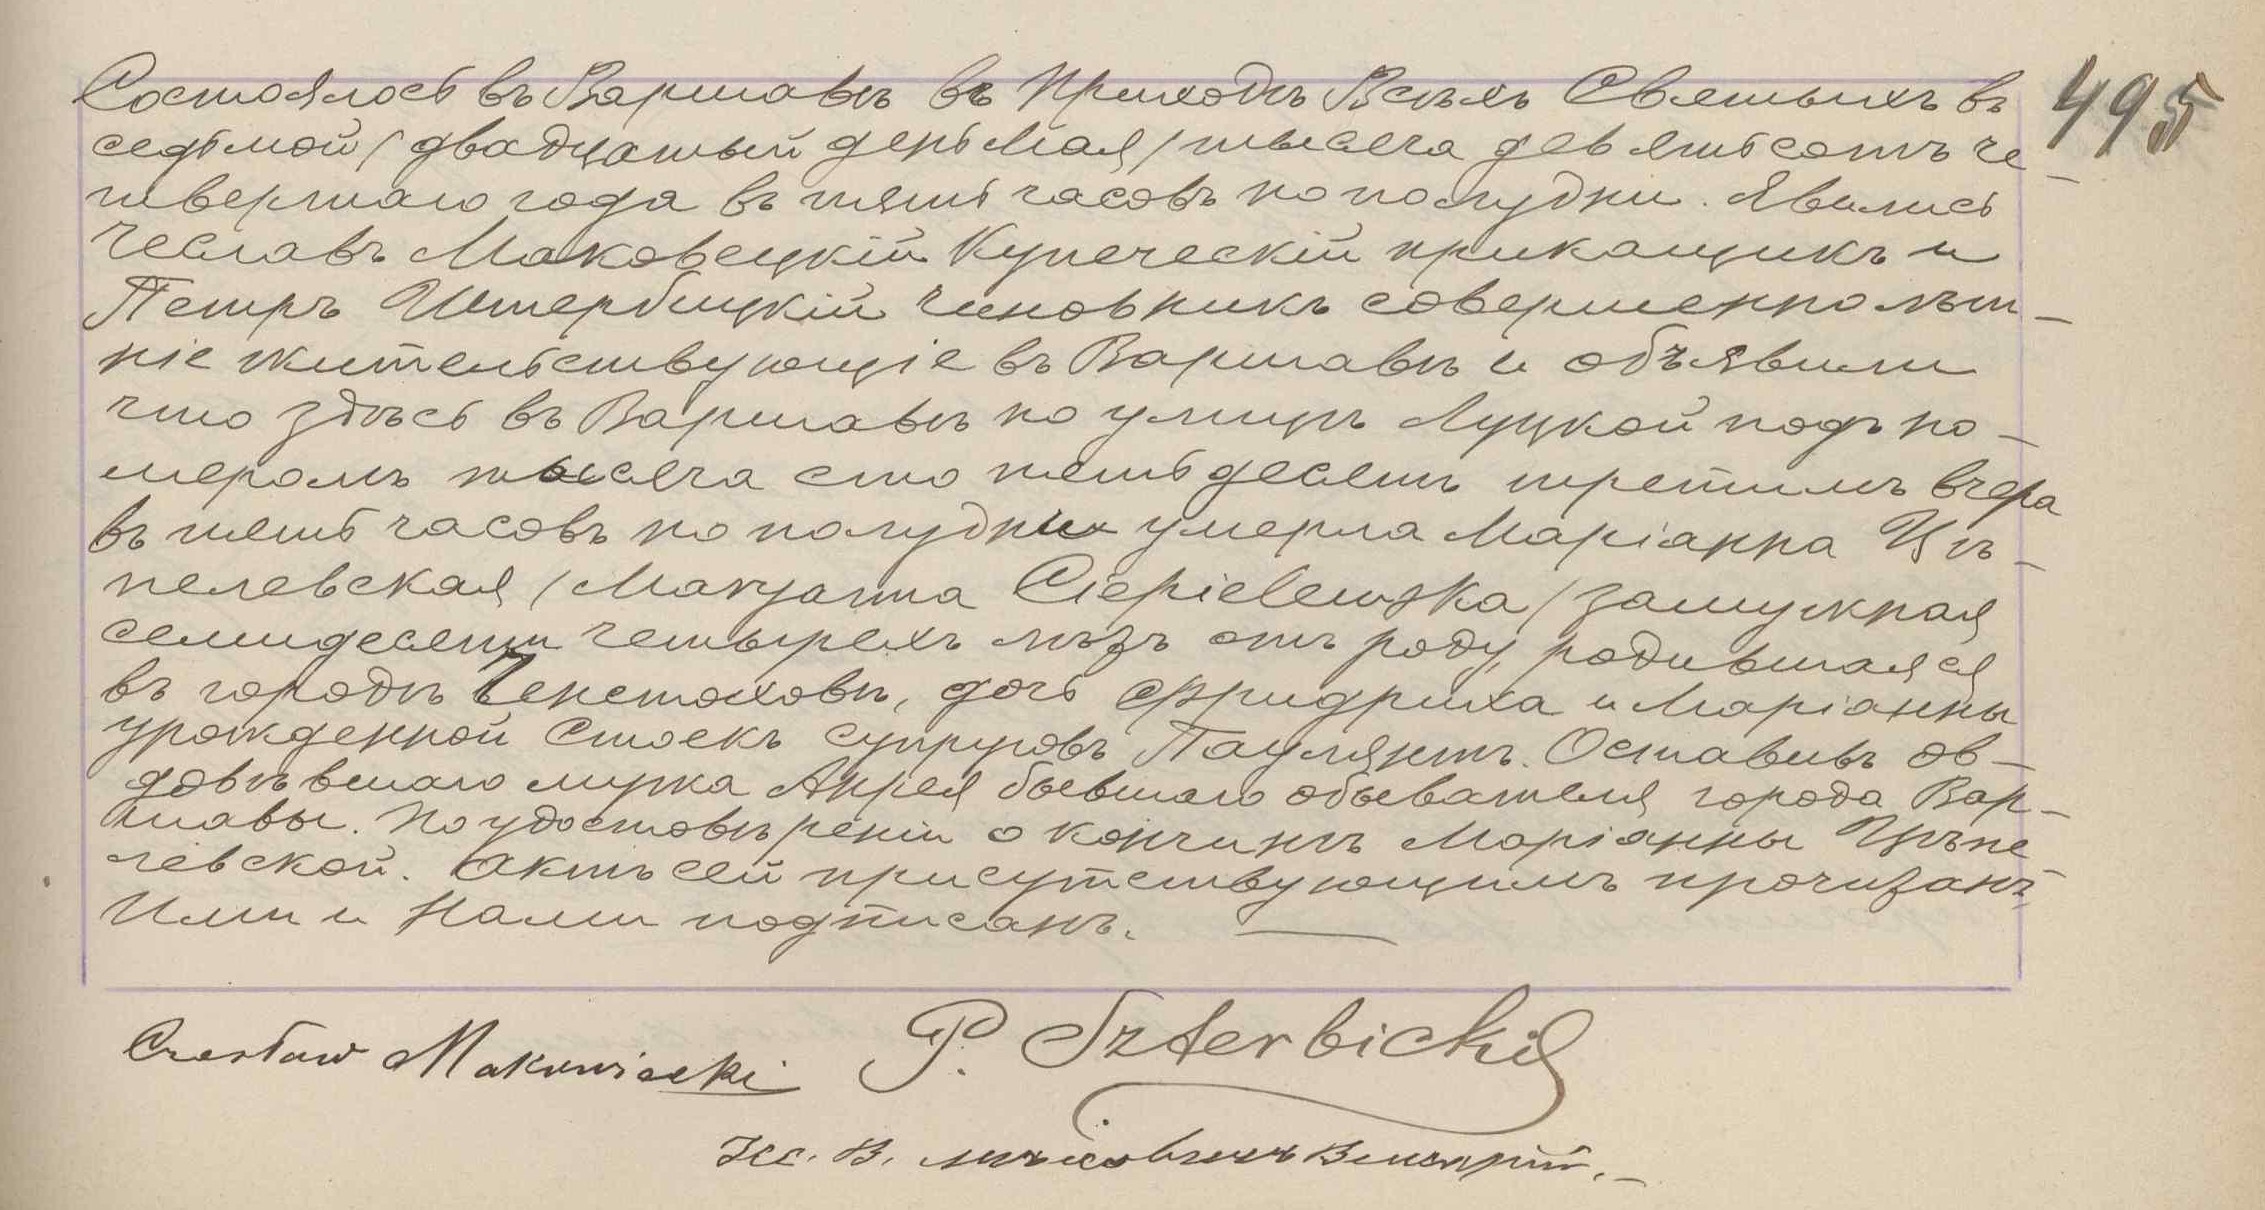 Состоялось въ Варшавѣ въ Приходѣ Всѣхъ Святыхъ въ
495
седьмой / двадцатый день Мая / тысяча девятьсотъ че-
твертаго года въ пять часовъ по полудни. Явились
Чеславъ Маковецкій Купеческій прикащикъ и
Петръ Штербицкій чиновникъ совершеннолѣт-
ніе жительствующіе въ Варшавѣ и объявили
что здѣсь въ Варшавѣ по улицѣ Луцкой подъ но-
меромъ тысяча сто пятьдесятъ третимъ вчера
въ пять часовъ по полудни умерла Маріанна Цѣ-
пелевская / Maryanna Ciepielewska / замужная
семидесяти четырехъ лѣтъ отъ роду, родившаяся
въ городѣ Ченстоховѣ, дочь Фридриха и Маріанны
урожденной Стоекъ супруговъ Паулянтъ. Оставивъ ов-
довѣвшаго мужа Анрея бывшаго обывателя города Вар-
шавы. По удостовѣреніи о кончинѣ Маріанны Цѣпе-
левской. Актъ сей присутствующимъ прочитанъ,
Ими и Нами подписанъ.
Czesław Makowiecki P. Szterbicki
Кс. В.